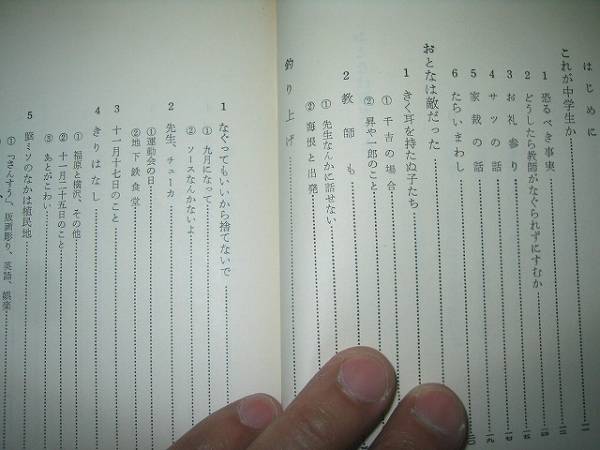 はじめに
これが中学生か
1 恐るべき事実
2 どうしたら教師がなぐられずにすむか
3 お礼参り
4 サツの話
5 家裁の話
6 たらいまわし
おとなは敵だった
1 きく耳を持たぬ子たち
① 千吉の場合
② 昇や一郎のこと
2 教師も
① 先生なんかに話せない
② 悔恨と出発
釣り上げ
1 なぐってもいいから捨てないで
① 九月になって
② ソースなんかないよ
2 先生、チューカ
① 運動会の日
② 地下鉄食堂
3 十一月十七日のこと
4 きりはなし
① 福原と横沢、その他
② 十一月二十五日のこと
③ あとがこわい
5 脳ミソのなかは植民地
① 「さんすう」、版画彫り、英語、娯楽